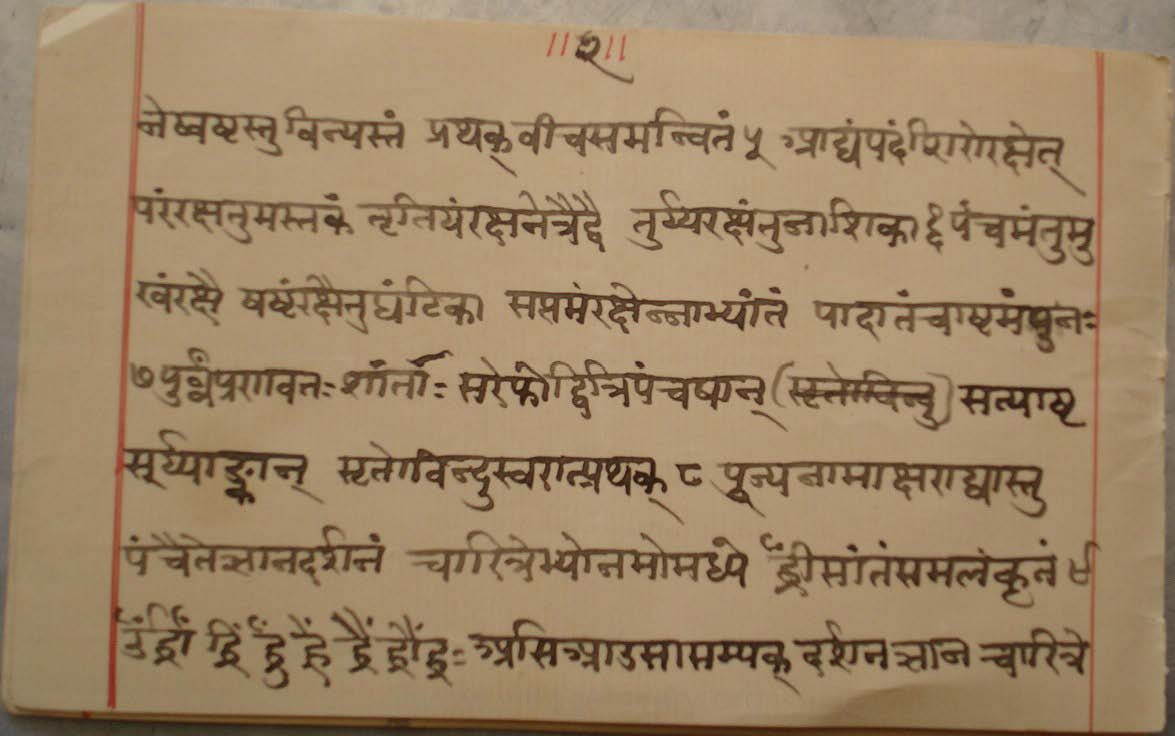 ॥२॥
नेष्वष्टस्तुविन्यस्तं प्रथक्वीचसमन्वितं ५ आद्यंपदंशिरोरक्षेत्
परंरक्षतुमस्तकं तृतियंरक्षनेत्रैद्वै तुर्य्यरक्षंतुनाशिका ६ पंचमंतुमु
खंरक्षै षष्टंरक्षैतुघंटिका सप्तमंरक्षेन्नाभ्यांतं पादातंचाष्टमंपुनः
७ पुर्व्वंप्रणवतः शांतोः सरेफोद्वित्रिपंचषान् (सृतोविन्दु) सत्याष्ट
सूर्य्याङ्कान् सृतोविन्दुस्वरात्प्रथक् ८ पूज्यनामाक्षराद्यास्तु
पंचैतेज्ञानदर्शनं चारित्रेभ्योनमोमध्ये ह्रींसांतंसमलंकृतं ९
उँह्राँ ह्रिँ ह्रुँ ह्रें ह्रैं ह्रौंह्रः असिआउसासम्यक् दर्शनज्ञान चारित्रे